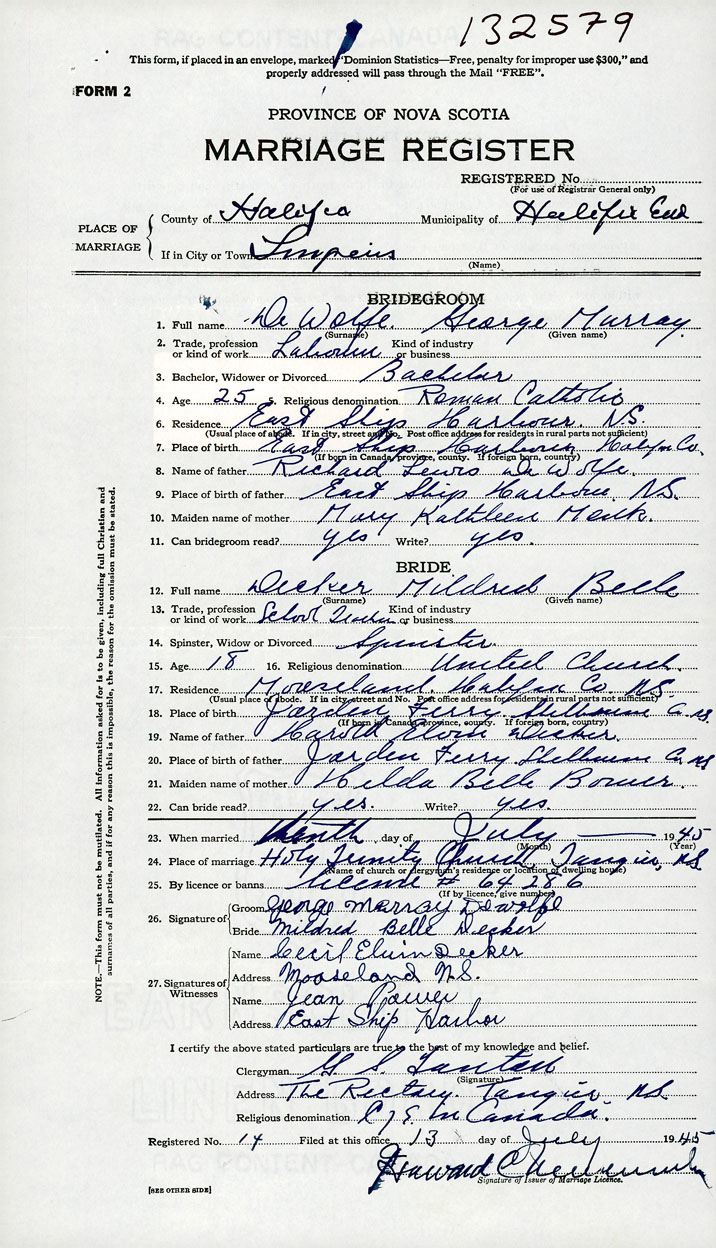 132579
This form, if placed in an envelope, marked "Dominion Statistics—Free, penalty for improper use $300," and
properly addressed will pass through the Mail "FREE".
FORM 2
PROVINCE OF NOVA SCOTIA
MARRIAGE REGISTER
REGISTERED No.
(For use of Registrar General only)
PLACE OF MARRIAGE
County of Halifax Municipality of Halifax East
If in City or Town
(Name)
BRIDEGROOM
1. Full name De Wolfe George Murray
(Surname) (Given name)
2. Trade, profession or kind of work Labourer Kind of industry or business
3. Bachelor, Widower or Divorced Bachelor
4. Age 25 5. Religious denomination Roman Catholic
6. Residence East Ship Harbour. N.S.
(Usual place of abode. If in city, street and No. Post office address for residents in rural parts not sufficient)
7. Place of birth East Ship Harbour, Halifax Co.
(If born in Canada, province, county. If foreign born, country)
8. Name of father Richard Lewis De Wolfe.
9. Place of birth of father East Ship Harbour, N.S.
10. Maiden name of mother Mary Kathleen
11. Can bridegroom read? yes Write? yes.
BRIDE
12. Full name Decker Mildred Belle
(Surname) (Given name)
13. Trade, profession or kind of work School Teacher Kind of industry or business
14. Spinster, Widow or Divorced Spinster.
15. Age 18 16. Religious denomination United Church.
17. Residence Mooseland. Halifax Co. N.S.
(Usual place of abode. If in city, street and No. Post office address for residents in rural parts not sufficient)
18. Place of birth Jorden Ferry, Shelburne Co. N.S.
(If born in Canada, province, county. If foreign born, country)
19. Name of father Harold Elvin Decker.
20. Place of birth of father Jorden Ferry, Shelburne Co. N.S
21. Maiden name of mother Hilda Belle Bower.
22. Can bride read? yes. Write? yes.
23. When married day of July 1945
(Month) (Year)
24. Place of marriage Holy Trinity Church, Tangier, N.S
(Name of church or clergyman's residence or location of dwelling house)
25. By licence or banns license # 64286
(If by licence, give number)
26. Signature of
Groom George Murray Dewolfe
Bride Mildred Belle Decker
27. Signatures of Witnesses
Name Cecil Elvin Decker
Address Mooseland N.S.
Name Jean Power
Address East Ship Harbor
I certify the above stated particulars are true to the best of my knowledge and belief.
Clergyman G. S. Tanton
(Signature)
Address The Rectory. Tangier, N.S.
Religious denomination C of E. in Canada.
Registered No. 14 Filed at this office 13 day of July 1945
Signature of Issuer of Marriage Licence.
[SEE OTHER SIDE]
NOTE.—This form must not be mutilated. All information asked for is to be given, including full Christian and
surnames of all parties, and if for any reason this is impossible, the reason for the omission must be stated.